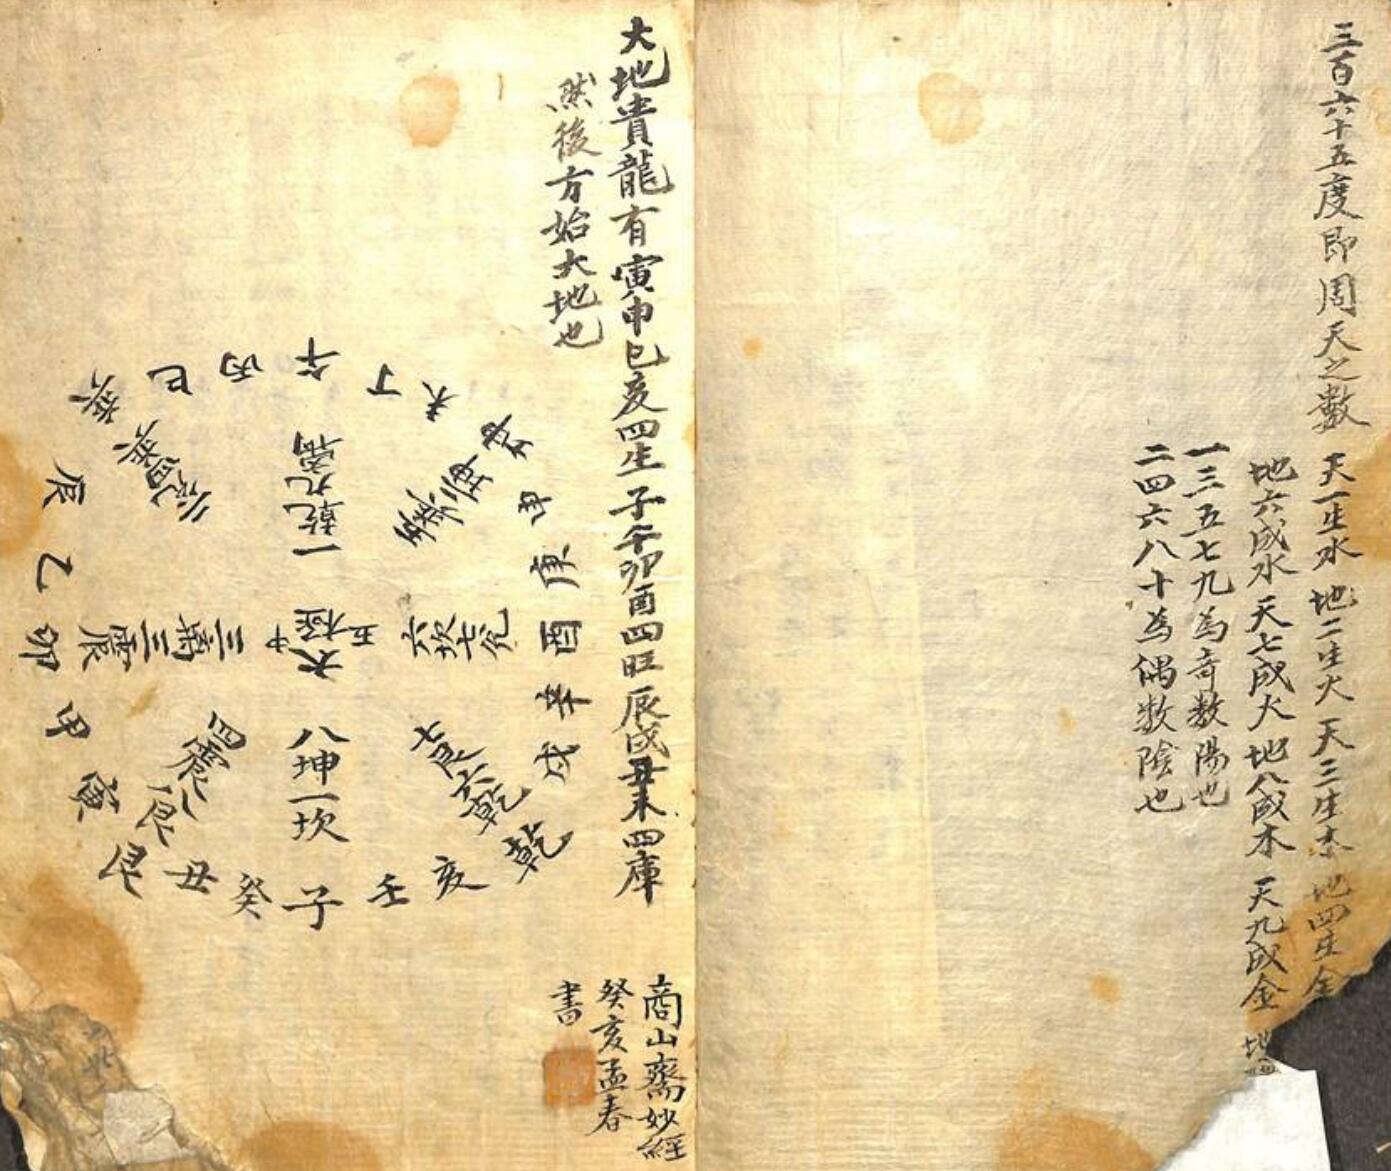 三百六十五度即周天之數 天一生水 地二生火 天三生木 地四生金
地六成水 天七成火 地八成木 天九成金 地
一三五七九為奇數陽也
二四六八十為偶數陰也
大地貴龍有寅申巳亥四生子午卯酉四旺辰戌丑未四庫
然後方始大地也
午
丁
未
坤
申
庚
酉
辛
戌
乾
亥
壬
子
癸
丑
艮
寅
甲
卯
乙
辰
巽
巳
丙
一乾九离
五巽二坤
六坎七兌
七艮六乾
八坤一坎
四震八艮
三离三震
二兌四巽
太極
中五
商山齋妙經
癸亥孟春
書